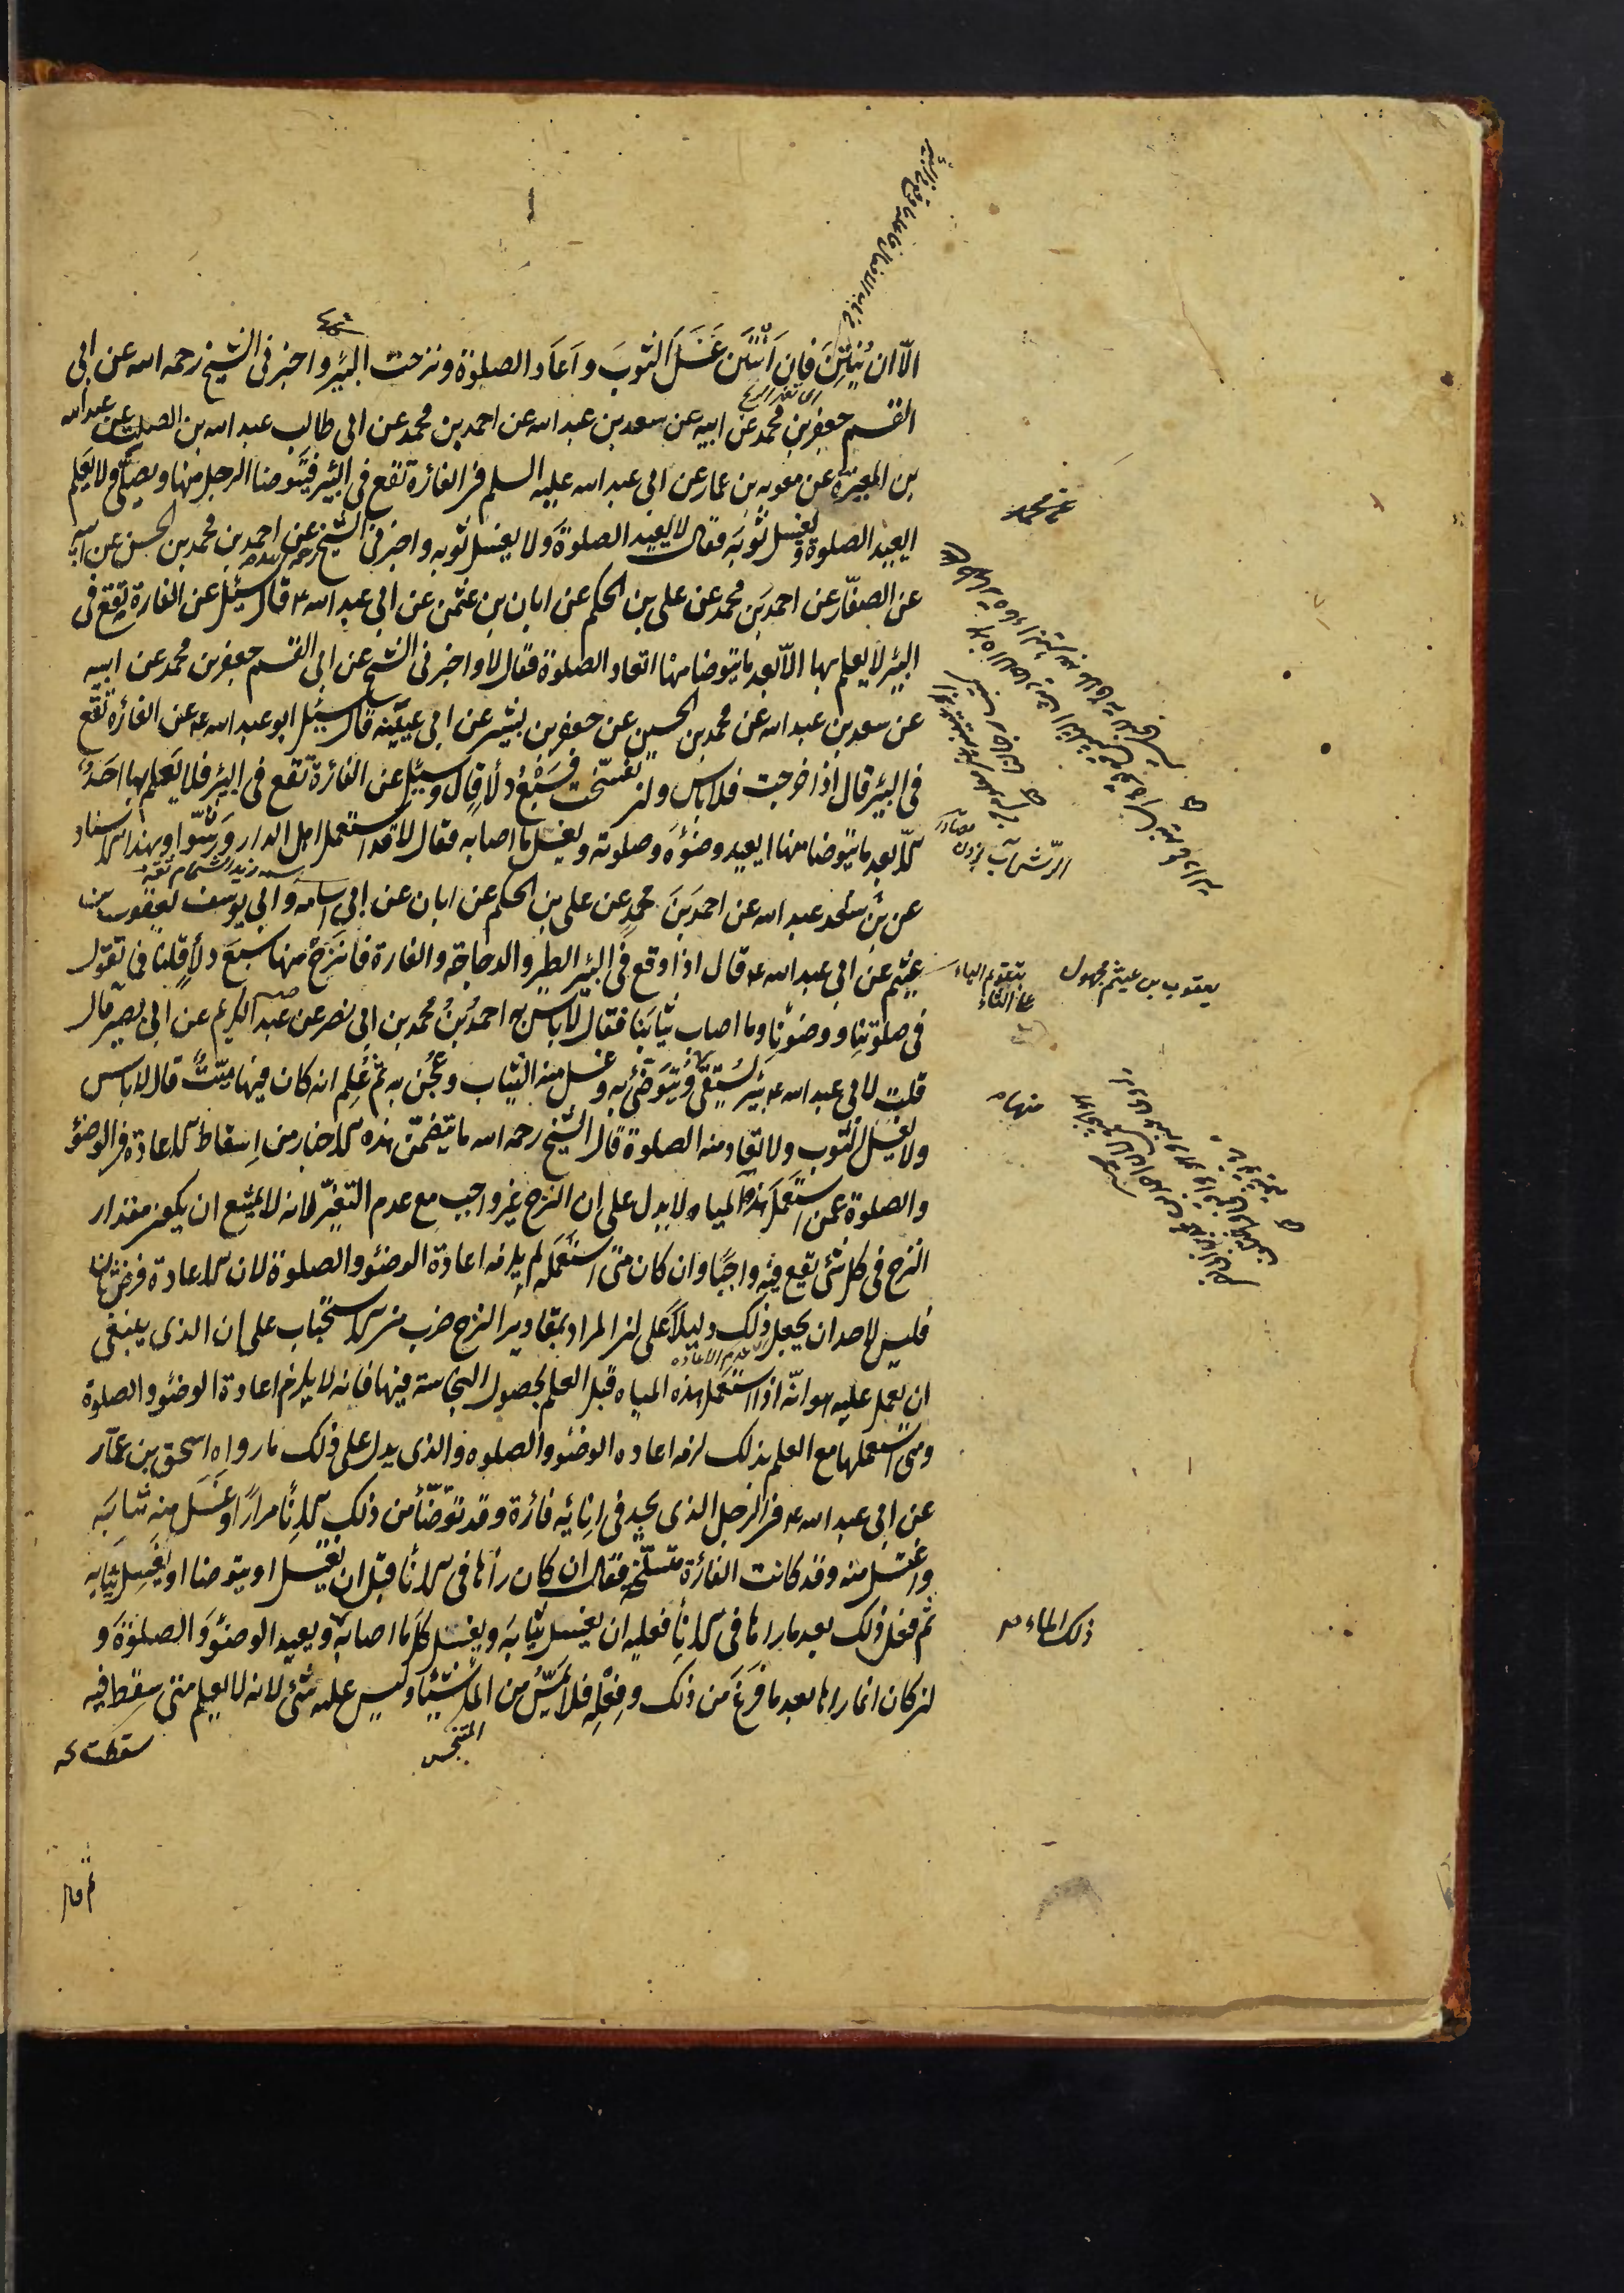 الّا ان يُنتِنَ فان اَنتَنَ غَسَلَ الثوبَ واَعاَد الصلوٰة ونزحت البئر واخبرنى الشيخ رحمه الله عن ابى
القسم جعفر بن محمد عن ابيه عن سعد بن عبد الله عن احمد بن محمد عن ابى طالب عبد الله بن الصلت عن عبد الله
بن المغيرة عن معوية بن عمار عن ابى عبد الله عليه السلم فى الفارة تقع فى البئر فيتوضا الرجل منها ويصلّى ولا يعلم
ايعيد الصلوة ويغسل ثوبَه فقال لا يعيد الصلوةَ ولا يغسل ثوبه واخبرنى الشيخ رحمه الله عن احمد بن محمد بن الحسن عن ابيه
عن الصفّار عن احمد بن محمد عن على بن الحكم عن ابان بن عثمن عن ابى عبد الله ع قال سئل عن الفارة تقع فى
البئر لا يعلم بها الّا بعد ما يتوضا منها اتعاد الصلوة فقال لا واخبرنى الشيخ عن ابى القسم جعفر بن محمد عن ابيه
عن سعد بن عبد الله عن محمد بن الحسين عن جعفر بن بشير عن ابى عيينه قال سئل ابو عبد الله ع عن الفارة تقع
فى البئر قال اذا خرجت فلا باس وان تفسّخت فسَبْعُ دلاءٍ قال وسئل عن الفارة تقع فى البئر فلا يعلم بها احدٌ
الا بعد ما يتوضا منها ايعيد وضوءَه وصلوته ويغسل ما اصابه فقال لا قد استعمل اهل الدار ورشّوا وبهذا الاسناد
عن سعد بن عبد الله عن احمد بن محمد عن على بن الحكم عن ابان عن ابى اسامه وابى يوسف يعقوب بن
عيثم عن ابى عبد الله ع قال اذا وقع فى البئر الطير والدجاجة والفارة فانزَحْ منها سبعَ دلاءٍ قلنا فما تقول
فى صلوتنا ووضوئنا وما اصاب ثيابَنا فقال لا باس به احمدُ بنُ محمد بن ابى نصر عن عبد الكريم عن ابى بصير قال
قلت لابى عبد الله ع بئر يُستقى ويُتوضّئُ به وغسل منه الثياب وعُجن به ثم عُلِم انه كان فيها ميّتٌ قال لا باس
ولا يغسل الثوب ولا تعاد منه الصلوة قال الشيخ رحمه الله ما يتضمّن هذه الاخبار من اِسقاط الاعادة فى الوضوء
والصلوة عمن استعمل هذه المياه لا يدل على ان النزح غير واجب مع عدم التغيّر لانه لا يمتنع ان يكون مقدار
النزح فى كل شئ يقع فيه واجبًا وان كان متى استعمله لم يلزمه اعادة الوضوء والصلوة لان الاعادة فرض ثان
فليس لاحد ان يجعل ذلك دليلاً على ان المراد بمقادير النزح ضرب من الاستحباب على ان الذى ينبغى
ان يعمل عليه هو انّه اذا استعمل هذه المياه قبل العلم بحصول النجاسة فيها فانه لا يلزم اعادة الوضوء والصلوة
ومتى استعملها مع العلم بذلك لزمه اعاده الوضوء والصلوه والذى يدل على ذلك ما رواه اسحق بن عمّار
عن ابى عبد الله ع فى الرجل الذى يجد فى اِنائه فارة وقد توضّأ من ذلك الاناء مرارًا وغَسَل منه ثيابَه
واغتسل منه وقد كانت الفارة متسلّخة فقال ان كان رأها فى الاناء قبل ان يغتسل او يتوضا او يغسل ثيابه
ثم فعل ذلك بعد ما راها فى الاناء فعليه ان يغسل ثيابَه ويغسل كلّ ما اصابه ويعيد الوضوءَ والصلوةَ و
ان كان انما راها بعد ما فرَغَ من ذلك وفِعْلِه فلا يمَسُّ من الماء شيئا وليس عليه شئ لانه لا يعلم متى سقط فيه
سقطت
المتنجس
ثم قال
عن محمد
الرّش آب زدن
يعقوب بن عيثم مجهول
بتقديم الياء على الثاء
منها
ذلك الماء
عدم الاعاده